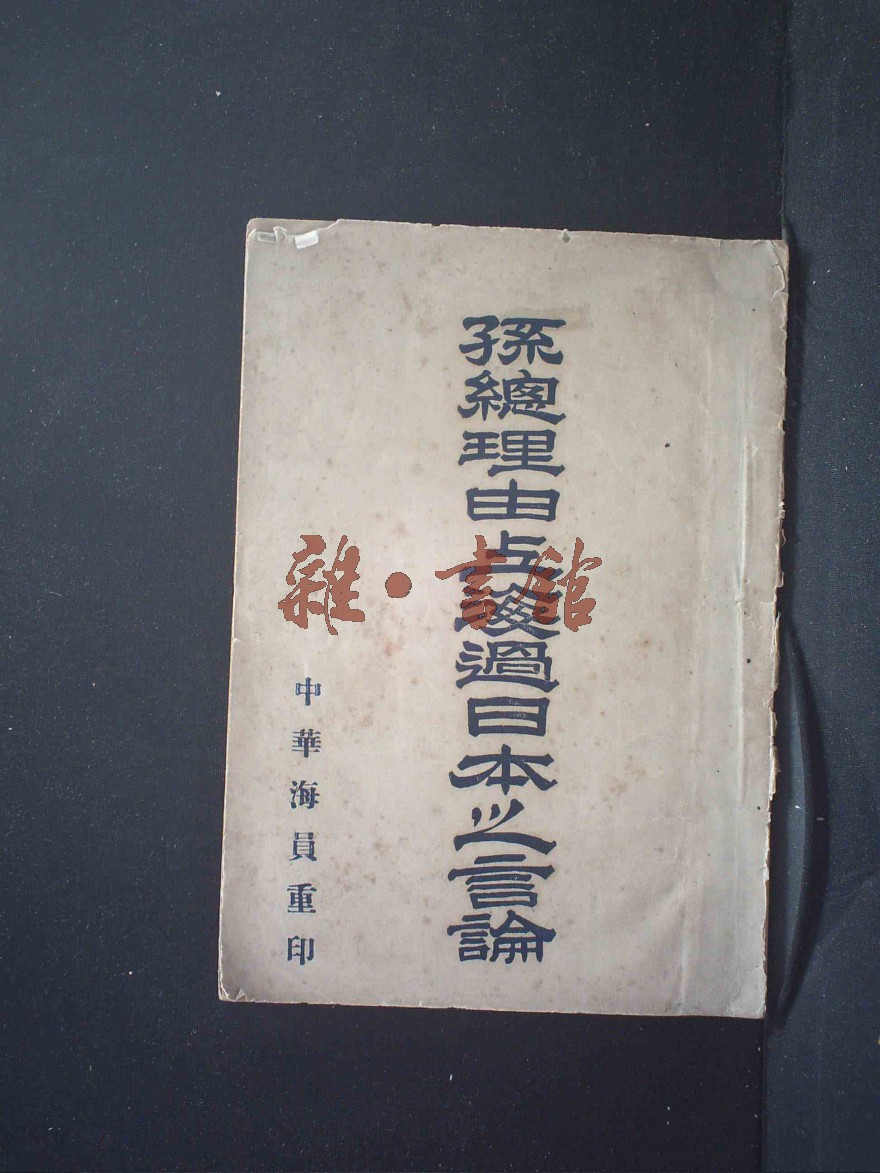 孫總理由上海過日本之言論
中華海員重印
雜·書館